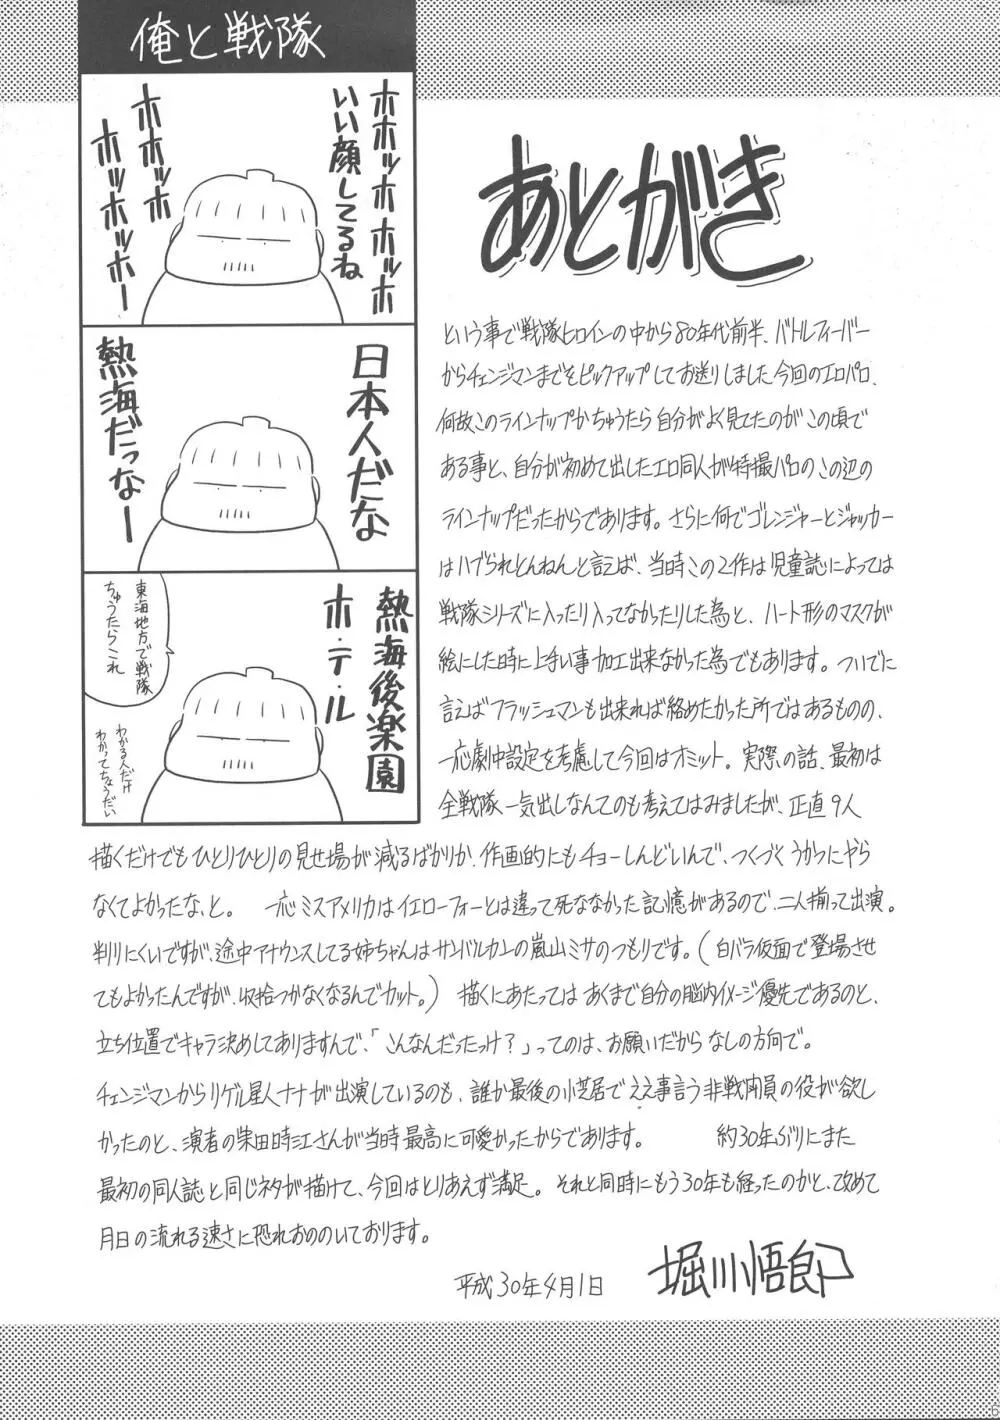 俺と戦隊
ホホッホホッホ
いい顔してるね
ホホッホ
ホッホッホー
日本人だな
熱海だっなー
熱海後楽園
ホ・テ・ル
東海地方で戦隊
ちゅうたらこれ
わかる人だけ
わかってちょうだい
あとがき
という事で戦隊ヒロインの中から80年代前半、バトルフィーバー
からチェンジマンまでをピックアップしてお送りしました今回のエロパロ、
何故このラインナップかちゅうたら自分がよく見てたのがこの頃で
ある事と、自分が初めて出したエロ同人が特撮パロのこの辺の
ラインナップだったからであります。さらに何でゴレンジャーとジャッカー
はハブられとんねんと言えば、当時この2作は児童誌によっては
戦隊シリーズに入ったり入ってなかったりした為と、ハート形のマスクが
絵にした時に上手い事加工出来なかった為でもあります。ついでに
言えばフラッシュマンも出来れば絡めたかった所ではあるものの、
一応劇中設定を考慮して今回はオミット。実際の話、最初は
全戦隊一気出しなんてのも考えてはみましたが、正直9人
描くだけでもひとりひとりの見せ場が減るばかりか、作画的にもチョーしんどいんで、つくづくうかつにやら
なくてよかったな、と。 一応ミスアメリカはイエローフォーとは違って死ななかった記憶があるので、二人揃って出演。
判りにくいですが、途中アナウンスしてる姉ちゃんはサンバルカンの嵐山ミサのつもりです。（白バラ仮面で登場させ
てもよかったんですが、収拾つかなくなるんでカット。） 描くにあたってはあくまで自分の脳内イメージ優先であるのと、
立ち位置でキャラ決めしてありますんで、「こんなんだったっけ？」ってのは、お願いだからなしの方向で。
チェンジマンからリゲル星人ナナが出演しているのも、誰か最後の小芝居でええ事言う非戦闘員の役が欲し
かったのと、演者の柴田時江さんが当時最高に可愛かったからであります。 約30年ぶりにまた
最初の同人誌と同じネタが描けて、今回はとりあえず満足。それと同時にもう30年も経ったのかと、改めて
月日の流れる速さに恐れおののいております。
平成30年4月1日 堀川悟郎